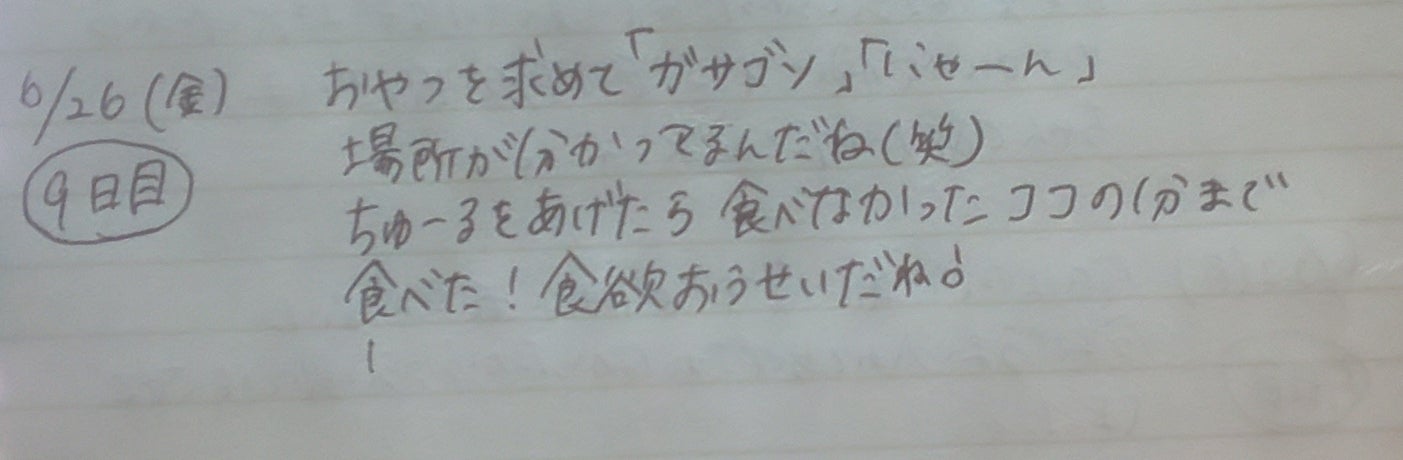 6/26(金) おやつを求めて「ガサゴソ」「にゃーん」
9日目 場所が分かってるんだね(笑)
ちゅーるをあげたら食べなかったココの分まで
食べた！食欲おうせいだね♪